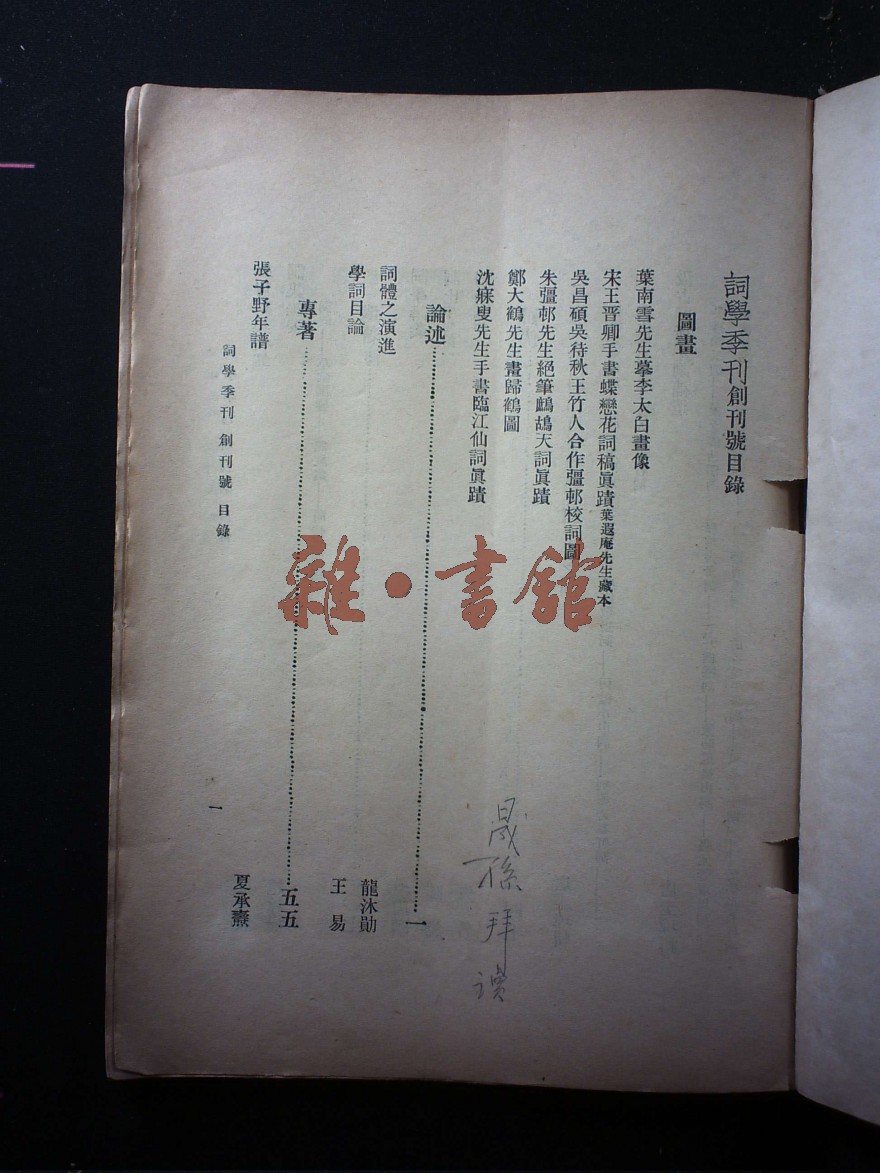 詞學季刊創刊號目錄
圖畫
葉南雪先生摹李太白畫像
宋王晋卿手書蝶戀花詞稿眞蹟葉遐庵先生藏本
吳昌碩吳待秋王竹人合作彊邨校詞圖
朱彊邨先生絕筆鷓鴣天詞眞蹟
鄭大鶴先生畫歸鶴圖
沈寐叟先生手書臨江仙詞眞蹟
論述 一
詞體之演進 龍沐勛
學詞目論 王易
專著 五五
張子野年譜 夏承燾
詞學季刊 創刊號 目錄
一
拜讀
雜·書館